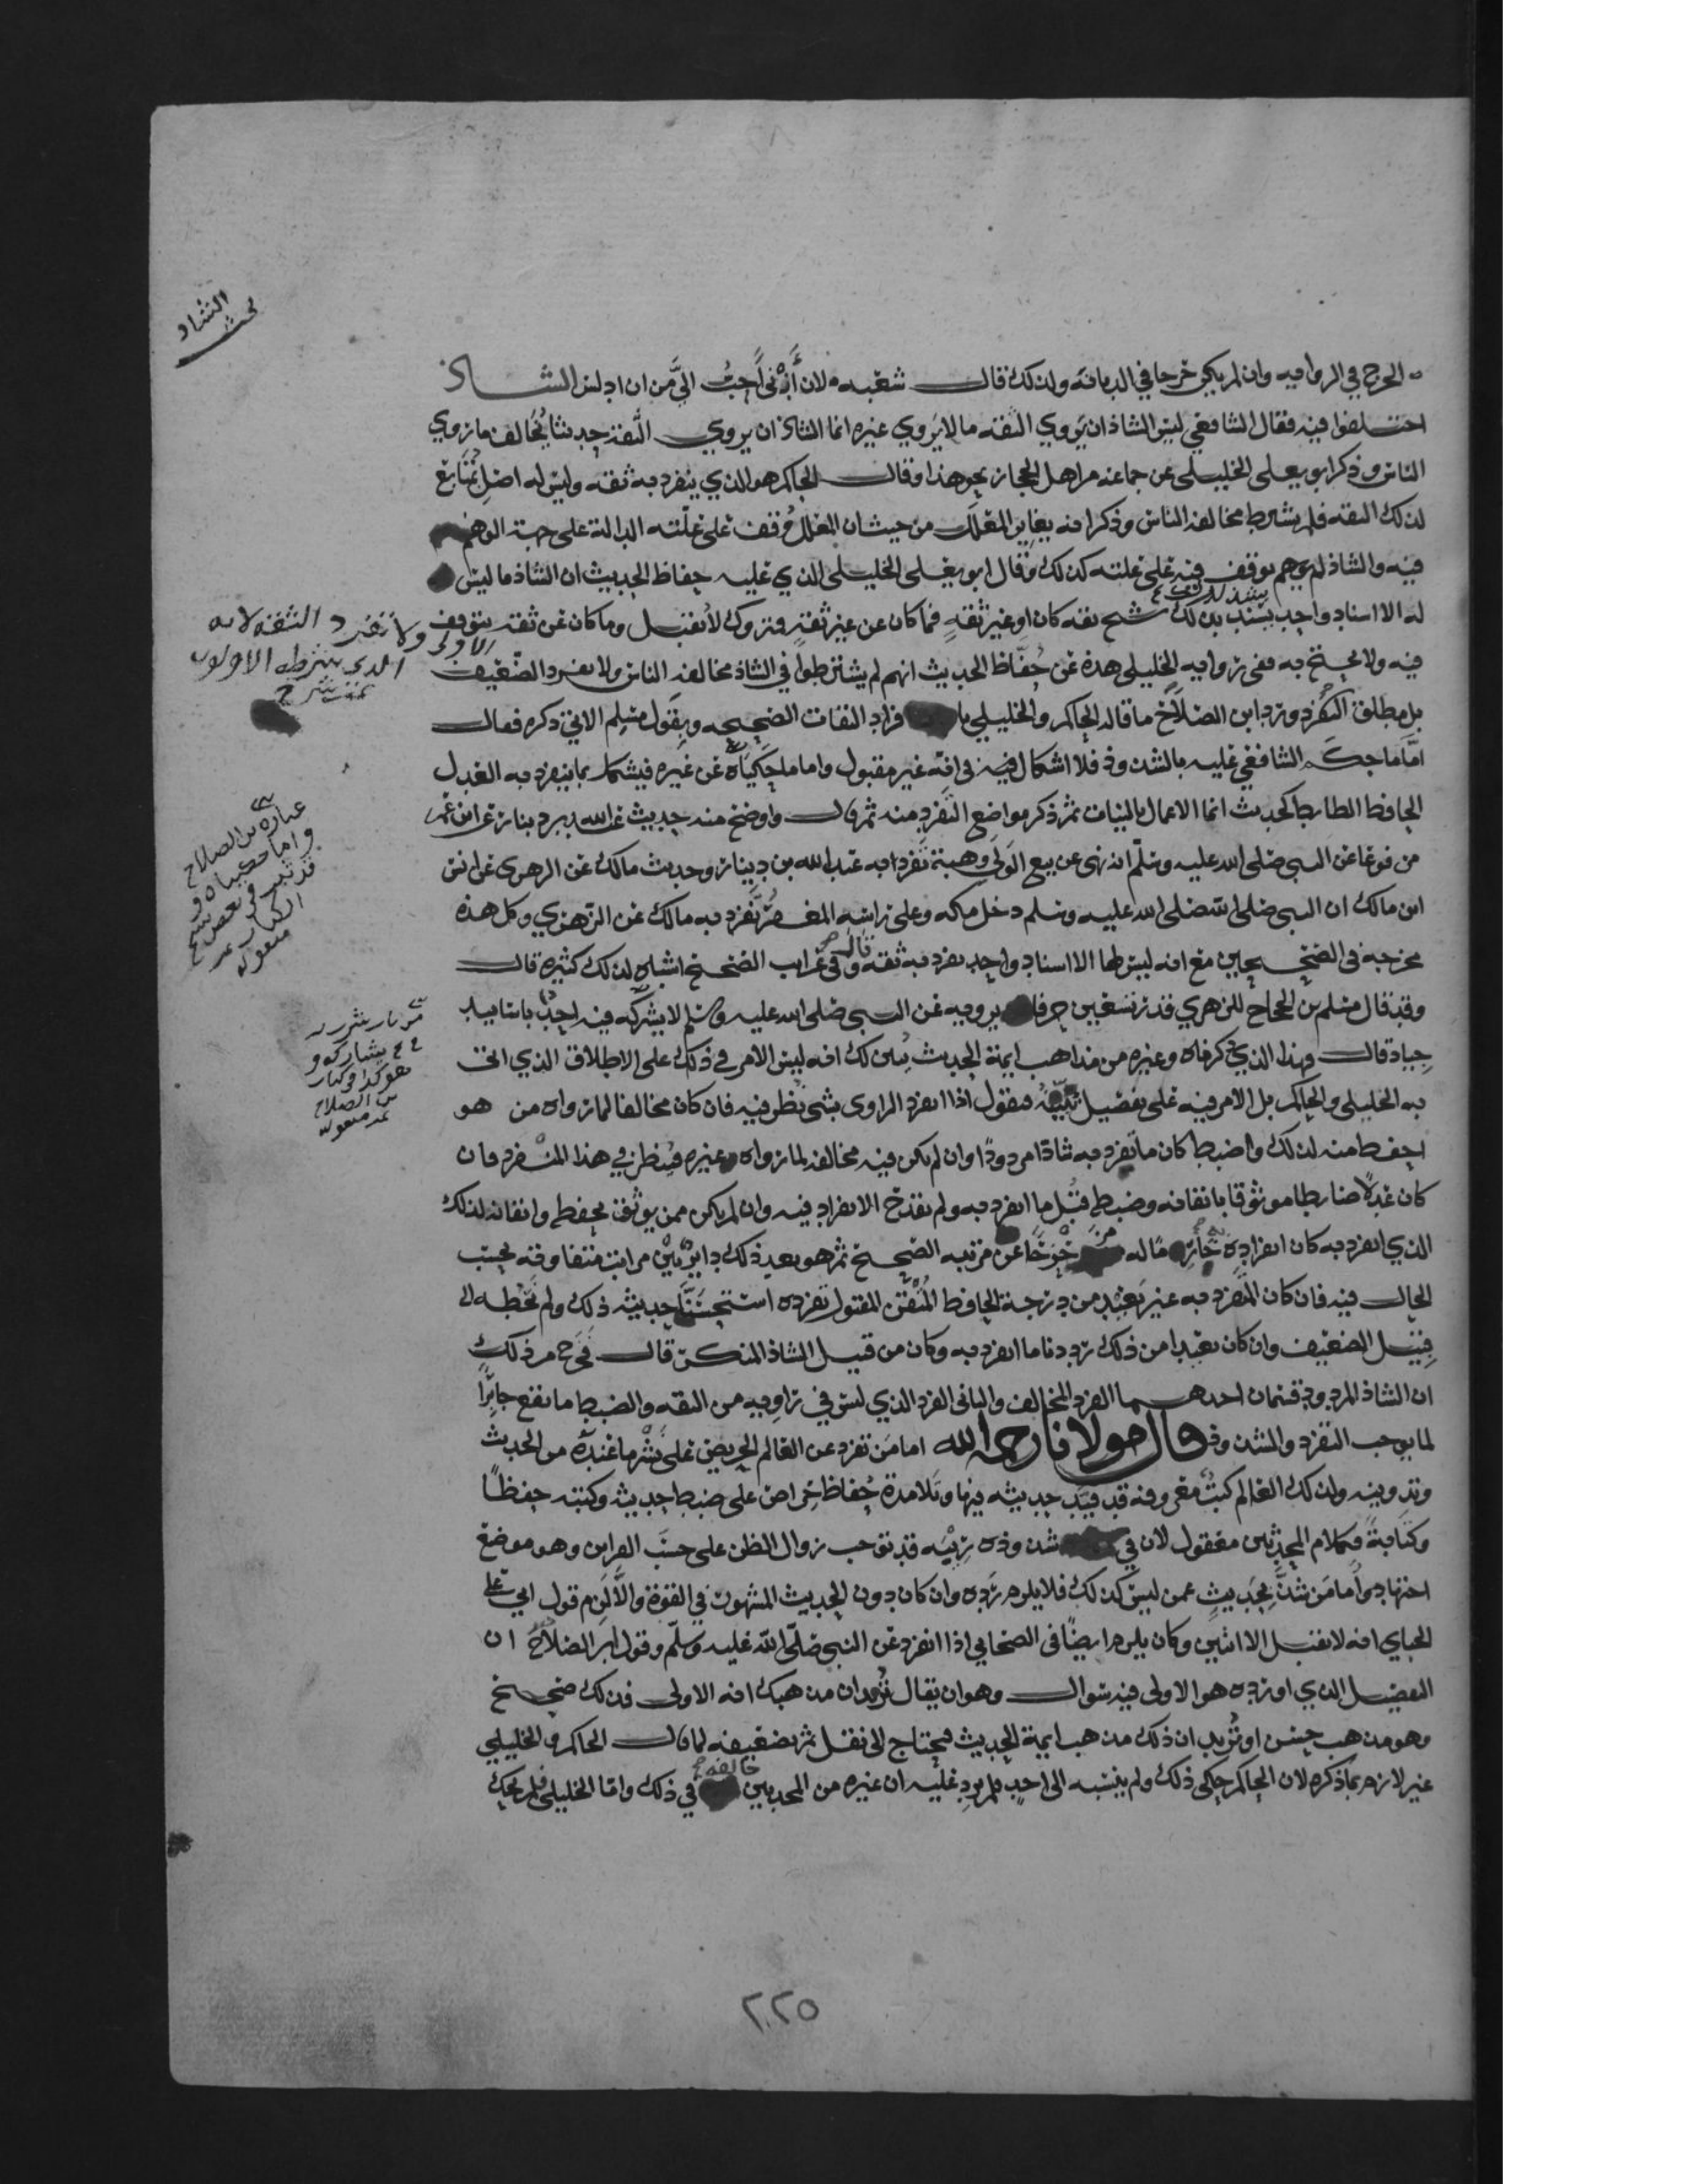 الجرح في الروايه وان لم يكن جرحا في الديانة ولذلك قال شعبه لان أزني أحبُّ اليَّ من ان ادلس الشاذ
اختلفوا فيه فقال الشافعي ليس الشاذ ان يروي الثقه ما لا يروي غيره انما الشاذ ان يروي الثقه حديثا يُخالف ما روي
الناس وذكر ابو يعلى الخليلي عن جماعه من اهل الحجاز نحو هذا وقال الحاكم هو الذي ينفرد به ثقه وليس له اصل مُتابَع
لذلك الثقه فلم يشترط مخالفه الناس وذكر انه يغاير المعلل من حيث ان المعلل وُقف على علّته الداله على جهة الوهم
فيه والشاذ لم يوقف فيه على علته كذلك وقال ابو يعلى الخليلي الذي عليه حفاظ الحديث ان الشاذ ما ليس
له الا اسناد واحد يشذ بذلك شيخ ثقه كان او غير ثقةٍ فما كان عن غير ثقةٍ فمتروك لا يُقبل وما كان عن ثقه يتوقف
فيه ولا يحتج به ففي روايه الخليلي هذه عن حُفّاظ الحديث انهم لم يشترطوا في الشاذ مخالفه الناس ولا تفرد الضعيف
بل مطلق التفرد ورد ابن الصلاح ما قاله الحاكم والخليلي بافراد الثقات الصحيحه وبقول مسلم الاتي ذكره فقال
امَّا ما حكم الشافعي عليه بالشذوذ فلا اشكال في انه غير مقبول واما ما حكيناه عن غيره فيشكل بما ينفرد به العدل
الحافظ الضابط كحديث انما الاعمال بالنيات ثم ذكر مواضع التفرد منه ثم قال واوضح منه حديث عبد الله بن دينار عن ابن عمر
مرفوعا عن النبي صلى الله عليه وسلم انه نهى عن بيع الوَلا وهبته تفرد به عبد الله بن دينار وحديث مالك عن الزهري عن انس
ابن مالك ان النبي صلى الله عليه وسلم دخل مكه وعلى راسه المغفر تفرد به مالك عن الزهري وكل هذه
مخرجه في الصحيحين مع انه ليس لها الا اسناد واحد تفرد به ثقه قال وفي غرائب الصحيح اشباه لذلك كثيره قال
وقد قال مسلم بن الحجاج للزهري قدر تسعين حرفا يرويه عن النبي صلى الله عليه وسلم لا يشركه فيه احد باسانيد
جياد قال فهذا الذي ذكرناه وغيره من مذاهب ايمة الحديث يُبين لك انه ليس الامر في ذلك على الاطلاق الذي اتى
به الخليلي والحاكم بل الامر فيه على تفصيل نبيّنه فنقول اذا انفرد الراوى بشى نُظر فيه فان كان مخالفا لما رواه من هو
احفظ منه لذلك واضبط كان ما تفرد به شاذا مردودًا وان لم يكن فيه مخالفه لما رواه غيره فيُنظر في هذا المنفرد فان
كان عدلا ضابطا موثوقا باتقانه وضبطه قُبل ما انفرد به ولم يقدح الانفراد فيه وان لم يكن ممن يوثق بحفظه واتقانه لذلك
الذي انفرد به كان انفراده خارما له مزحزحًا عن مرتبه الصحيح ثم هو بعد ذلك دايرٌ بين مراتب متفاوته بحسب
الحال فيه فان كان المتفرد به غير بعيد من درجة الحافظ المُتقن المقبول تفرده استحسنّا حديثه ذلك ولم نحُطه الى
قبيل الضعيف وان كان بعيدا من ذلك رددنا ما انفرد به وكان من قبيل الشاذ المنكر قال فخرج من ذلك
ان الشاذ المردود قسمان احدهما الفرد المخالف والثاني الفرد الذي ليس في راويه من الثقه والضبط ما يقع جابرًا
لما يوجب التفرد والشذوذ قال مولانا رحمه الله اما من تفرد عن العالم الحريص على نشر ما عنده من الحديث
وتدوينه ولذلك العالم كتبٌ معروفه قد قيّد حديثه فيها وتلامذة حُفاظ حِراص على ضبط حديثه وكتبه حِفظًا
وكتابةً فكلام المحدثين معقول لان في شذوذه رِيْبَه قد توجب زوال الظن على حسب القراين وهو موضع
اجتهاد واما من شذّ بحديثٍ عمن ليس كذلك فلا يلزم ردّه وان كان دون الحديث المشهور في القوة والاّ لزم قول ابي علي
الجبائي انه لا يقبل الا اثنين وكان يلزم ايضًا في الصحابي اذا انفرد عن النبي صلى الله عليه وسلّم وقول ابن الصلاح ان
التفصيل الذي اورده هو الاولى فيه سوال وهو ان يقال تُريد ان مذهبك انه الاولى فذلك صحيح
وهو مذهب حسن او تُريد ان ذلك مذهب ايمة الحديث فيحتاج الى نقل ثم تضعيفه لما قال الحاكم والخليلي
غير لازم بما ذكره لان الحاكم حكى ذلك ولم ينسبه الى احدٍ فلم يرِد عليه ان غيره من المحدثين خالفه في ذلك واما الخليلي فلم يحك
بحث الشاذ
ولا تفرد الثقه لانه
الذي شرطه الاولون
عباره بن الصلاح
واما حكيناه و
قد ثبت في بعض نسخ
الكتاب
يشاركه و
هو كذا في كتاب
بن الصلاح
٢٢٥